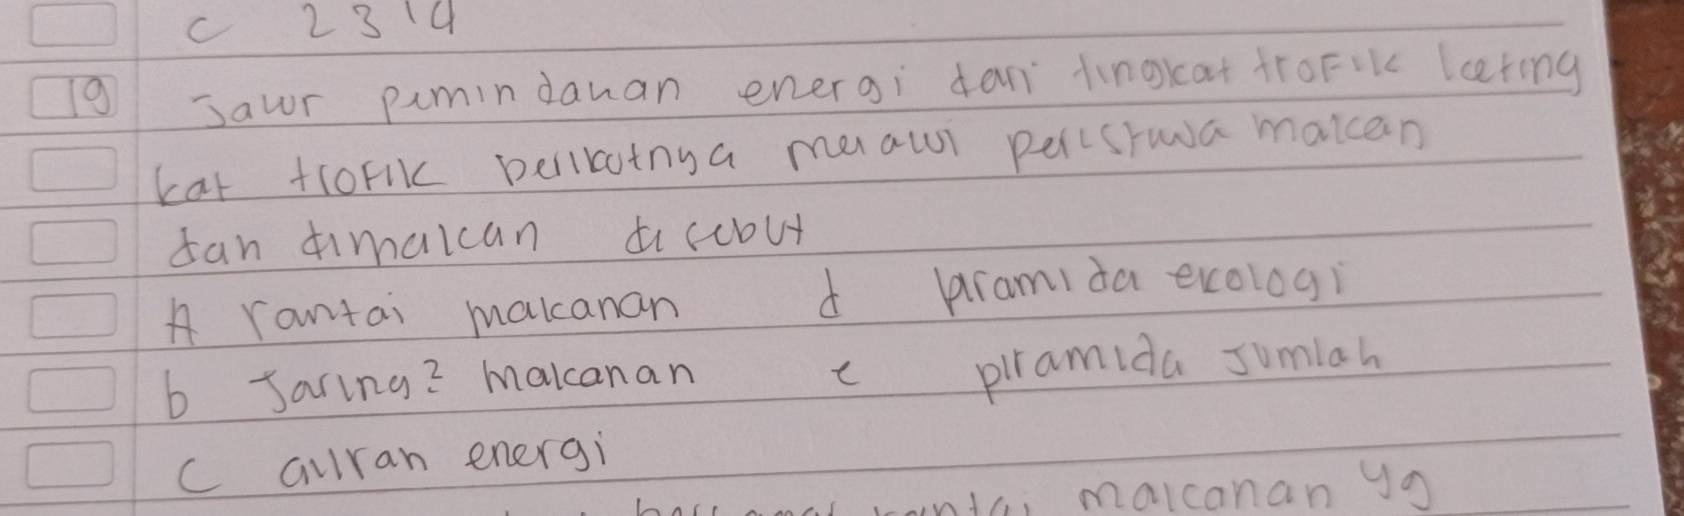 c 2314
19 Jalur pemindahan energi dari tingkat trofik keting
kat trofik berikutnya melalui peristiwa makan
dan dimakan disebut
A rantai makanan d piramida ekologi
b Jaring2 makanan e piramida Jumlah
c aliran energi
rantai makanan yg